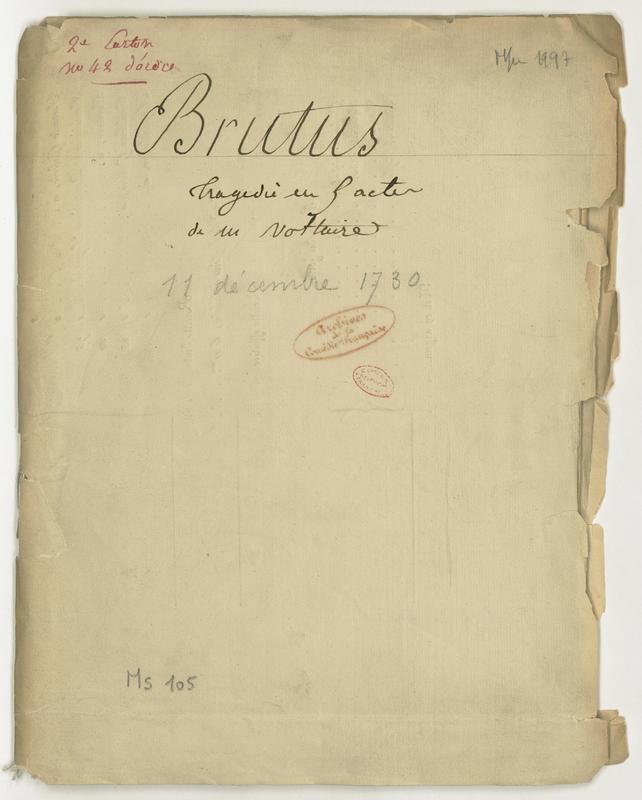 2e Carton
no 42 d'ordre
Brutus
tragedie en 5 actes
de m voltaire
11 décembre 1730
Archives
de la
Comédie Française
Ms 105